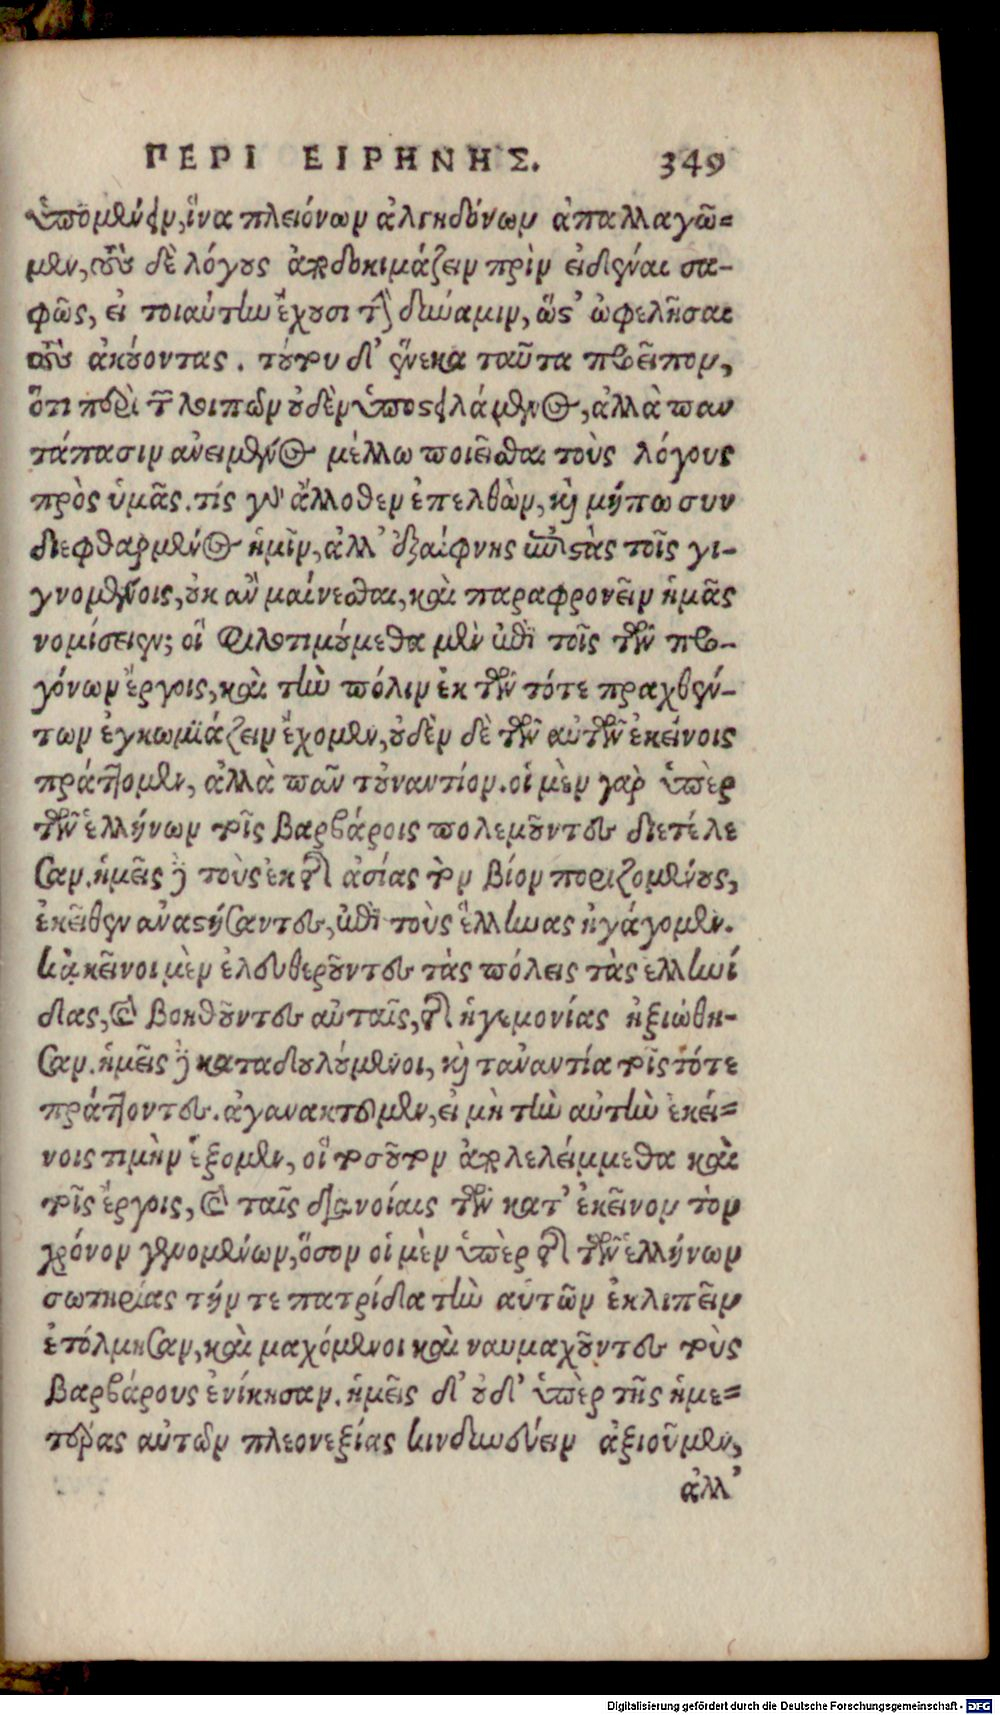 ΠΕΡΙ ΕΙΡΗΝΗΣ. 349
ὑπομένειν, ἵνα πλειόνων ἀλγηδόνων ἀπαλλαγῶ=
μεν, τοὺς δὲ λόγους ἀποδοκιμάζειν πρὶν εἰδέναι σα-
φῶς, εἰ τοιαύτην ἔχουσι τὴν δύναμιν, ὥστ' ὠφελῆσαι
τοὺς ἀκούοντας. τούτου δ' ἕνεκα ταῦτα προεῖπον,
ὅτι περὶ τῶν λοιπῶν οὐδὲν ὑποστειλάμενος, ἀλλὰ παν
τάπασιν ἀνειμένος μέλλω ποιεῖσθαι τοὺς λόγους
πρὸς ὑμᾶς. τίς γὰρ ἄλλοθεν ἐπελθὼν, καὶ μήπω συν
διεφθαρμένος ἡμῖν, ἀλλ' ἐξαίφνης ἐπιστὰς τοῖς γι-
γνομένοις, οὐκ ἂν μαίνεσθαι, καὶ παραφρονεῖν ἡμᾶς
νομίσειεν; οἳ φιλοτιμούμεθα μὲν ἐπὶ τοῖς τῶν προ-
γόνων ἔργοις, καὶ τὴν πόλιν ἐκ τῶν τότε πραχθέν-
των ἐγκωμιάζειν ἔχομεν, οὐδὲν δὲ τῶν αὐτῶν ἐκείνοις
πράττομεν, ἀλλὰ πᾶν τοὐναντίον. οἱ μὲν γὰρ ὑπὲρ
τῶν ἑλλήνων τοῖς βαρβάροις πολεμοῦντες διετέλε
σαν. ἡμεῖς δὲ τοὺς ἐκ τῆς ἀσίας τὸν βίον ποριζομένους,
ἐκεῖθεν ἀναστήσαντες, ἐπὶ τοὺς ἕλληνας ἠγάγομεν.
κἀκεῖνοι μὲν ἐλευθεροῦντες τὰς πόλεις τὰς ἑλληνί
δας, καὶ βοηθοῦντες αὐταῖς, τῆς ἡγεμονίας ἠξιώθη-
σαν. ἡμεῖς δὲ καταδουλούμενοι, καὶ τἀναντία τοῖς τότε
πράττοντες. ἀγανακτοῦμεν, εἰ μὴ τὴν αὐτὴν ἐκεί=
νοις τιμὴν ἕξομεν, οἳ τοσοῦτον ἀπολελείμμεθα καὶ
τοῖς ἔργοις, καὶ ταῖς διανοίαις τῶν κατ' ἐκεῖνον τὸν
χρόνον γενομένων, ὅσον οἱ μὲν ὑπὲρ τῆς τῶν ἑλλήνων
σωτηρίας τήν τε πατρίδα τὴν αὑτῶν ἐκλιπεῖν
ἐτόλμησαν, καὶ μαχόμενοι καὶ ναυμαχοῦντες τοὺς
βαρβάρους ἐνίκησαν. ἡμεῖς δ' οὐδ' ὑπὲρ τῆς ἡμε=
τέρας αὐτῶν πλεονεξίας κινδυνεύειν ἀξιοῦμεν,
ἀλλ'
Digitalisierung gefördert durch die Deutsche Forschungsgemeinschaft - DFG